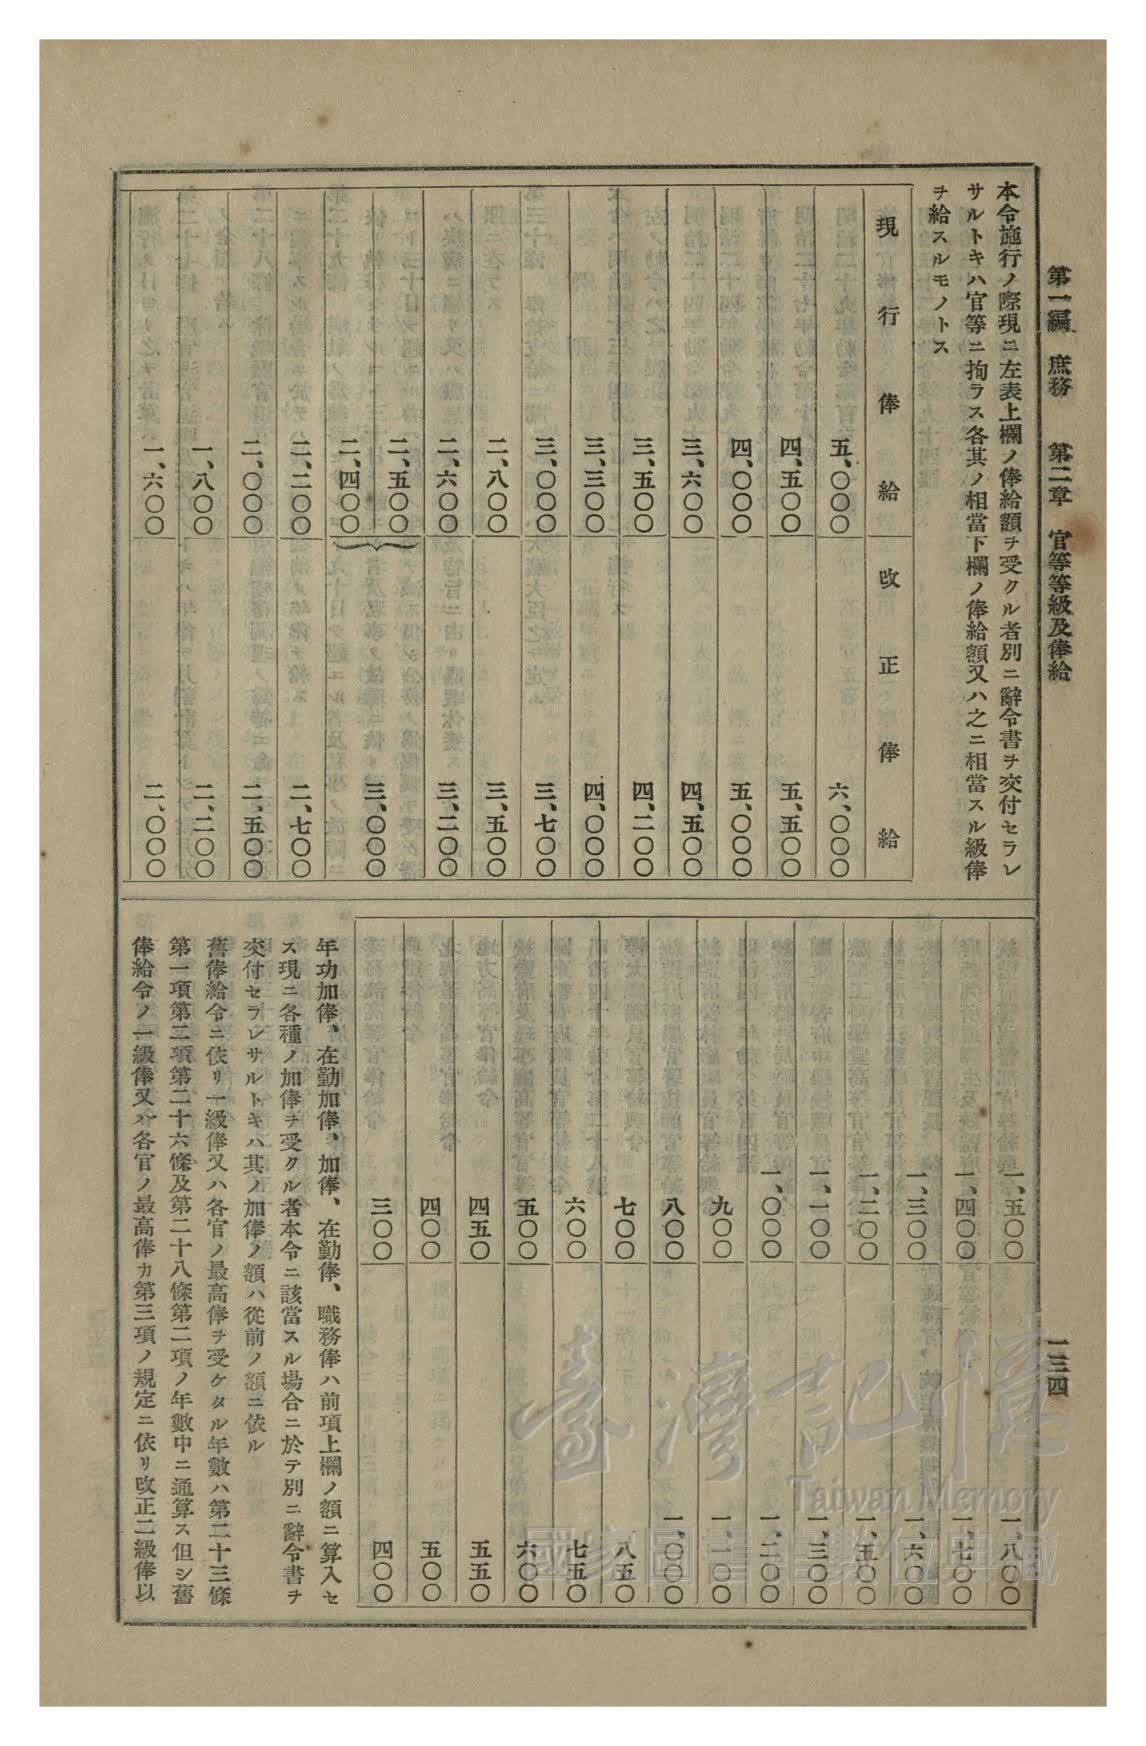 第一編　庶務　　第二章　官等等級及俸給
一三四
本令施行ノ際現ニ左表上欄ノ俸給額ヲ受クル者別ニ辭令書ヲ交付セラレ
サルトキハ官等ニ拘ラス各其ノ相當下欄ノ俸給額又ハ之ニ相當スル級俸
ヲ給スルモノトス
現行俸給　改正俸給
五、〇〇〇　六、〇〇〇
四、五〇〇　五、五〇〇
四、〇〇〇　五、〇〇〇
三、六〇〇　四、五〇〇
三、五〇〇　四、二〇〇
三、三〇〇　四、〇〇〇
三、〇〇〇　三、七〇〇
二、八〇〇　三、五〇〇
二、六〇〇　三、二〇〇
二、五〇〇
二、四〇〇　三、〇〇〇
二、二〇〇　二、七〇〇
二、〇〇〇　二、五〇〇
一、八〇〇　二、二〇〇
一、六〇〇　二、〇〇〇
一、五〇〇　一、八〇〇
一、四〇〇　一、七〇〇
一、三〇〇　一、六〇〇
一、二〇〇　一、五〇〇
一、一〇〇　一、三〇〇
一、〇〇〇　一、二〇〇
九〇〇　一、一〇〇
八〇〇　一、〇〇〇
七〇〇　八五〇
六〇〇　七五〇
五〇〇　六〇〇
四五〇　五五〇
四〇〇　五〇〇
三〇〇　四〇〇
年功加俸、在勤加俸、加俸、在勤俸、職務俸ハ前項上欄ノ額ニ算入セ
ス現ニ各種ノ加俸ヲ受クル者本令ニ該當スル場合ニ於テ別ニ辭令書ヲ
交付セラレサルトキハ其ノ加俸ノ額ハ從前ノ額ニ依ル
舊俸給令ニ依リ一級俸又ハ各官ノ最高俸ヲ受ケタル年數ハ第二十三條
第一項第二項第二十六條及第二十八條第二項ノ年數中ニ通算ス但シ舊
俸給令ノ一級俸又ハ各官ノ最高俸カ第三項ノ規定ニ依リ改正二級俸以
臺灣記憶
Taiwan Memory
國家圖書館數位典藏